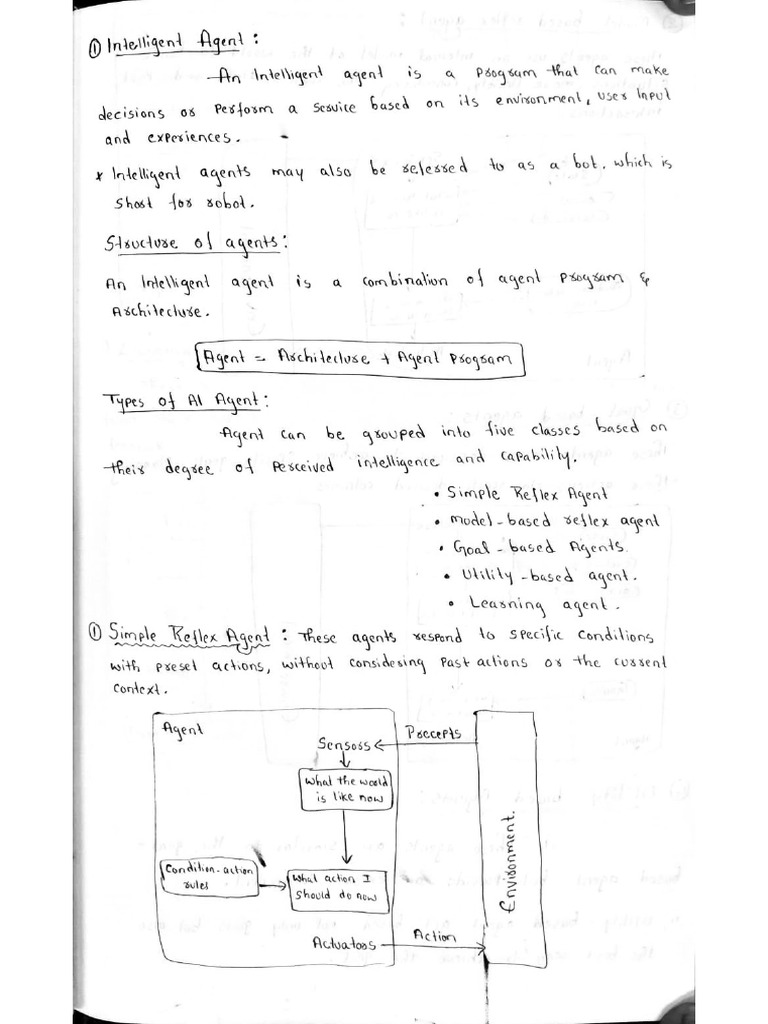 ① Intelligent Agent :
An Intelligent agent is a program that can make
decisions or perform a service based on its environment, user input
and experiences.
* Intelligent agents may also be referred to as a bot, which is
short for robot.
Structure of agents :
An Intelligent agent is a combination of agent program &
Architecture.
Agent = Architecture + Agent program
Types of AI Agent :
Agent can be grouped into five classes based on
their degree of perceived intelligence and capability.
• Simple Reflex Agent
• Model-based reflex agent
• Goal-based Agents.
• Utility-based agent.
• Learning agent.
① Simple Reflex Agent : These agents respond to specific conditions
with preset actions, without considering past actions or the current
context.
Agent
Precepts
Sensors
What the world
is like now
Condition-action
rules
What action I
should do now
Environment.
Actuators
Action